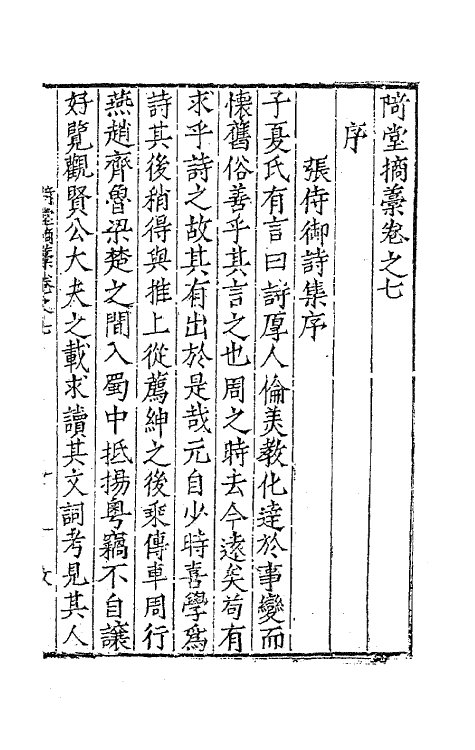 陭堂摘藁卷之七
序
張侍御詩集序
子夏氏有言曰詩厚人倫美教化達於事變而
懷舊俗善乎其言之也周之時去今遠矣苟有
求乎詩之故其有出於是哉元自少時喜學為
詩其後稍得與推上從薦紳之後乘傳車周行
燕趙齊魯梁楚之間入蜀中抵揚粵竊不自讓
好覽觀賢公大夫之載求讀其文詞考見其人
陭堂摘藁卷之七
一